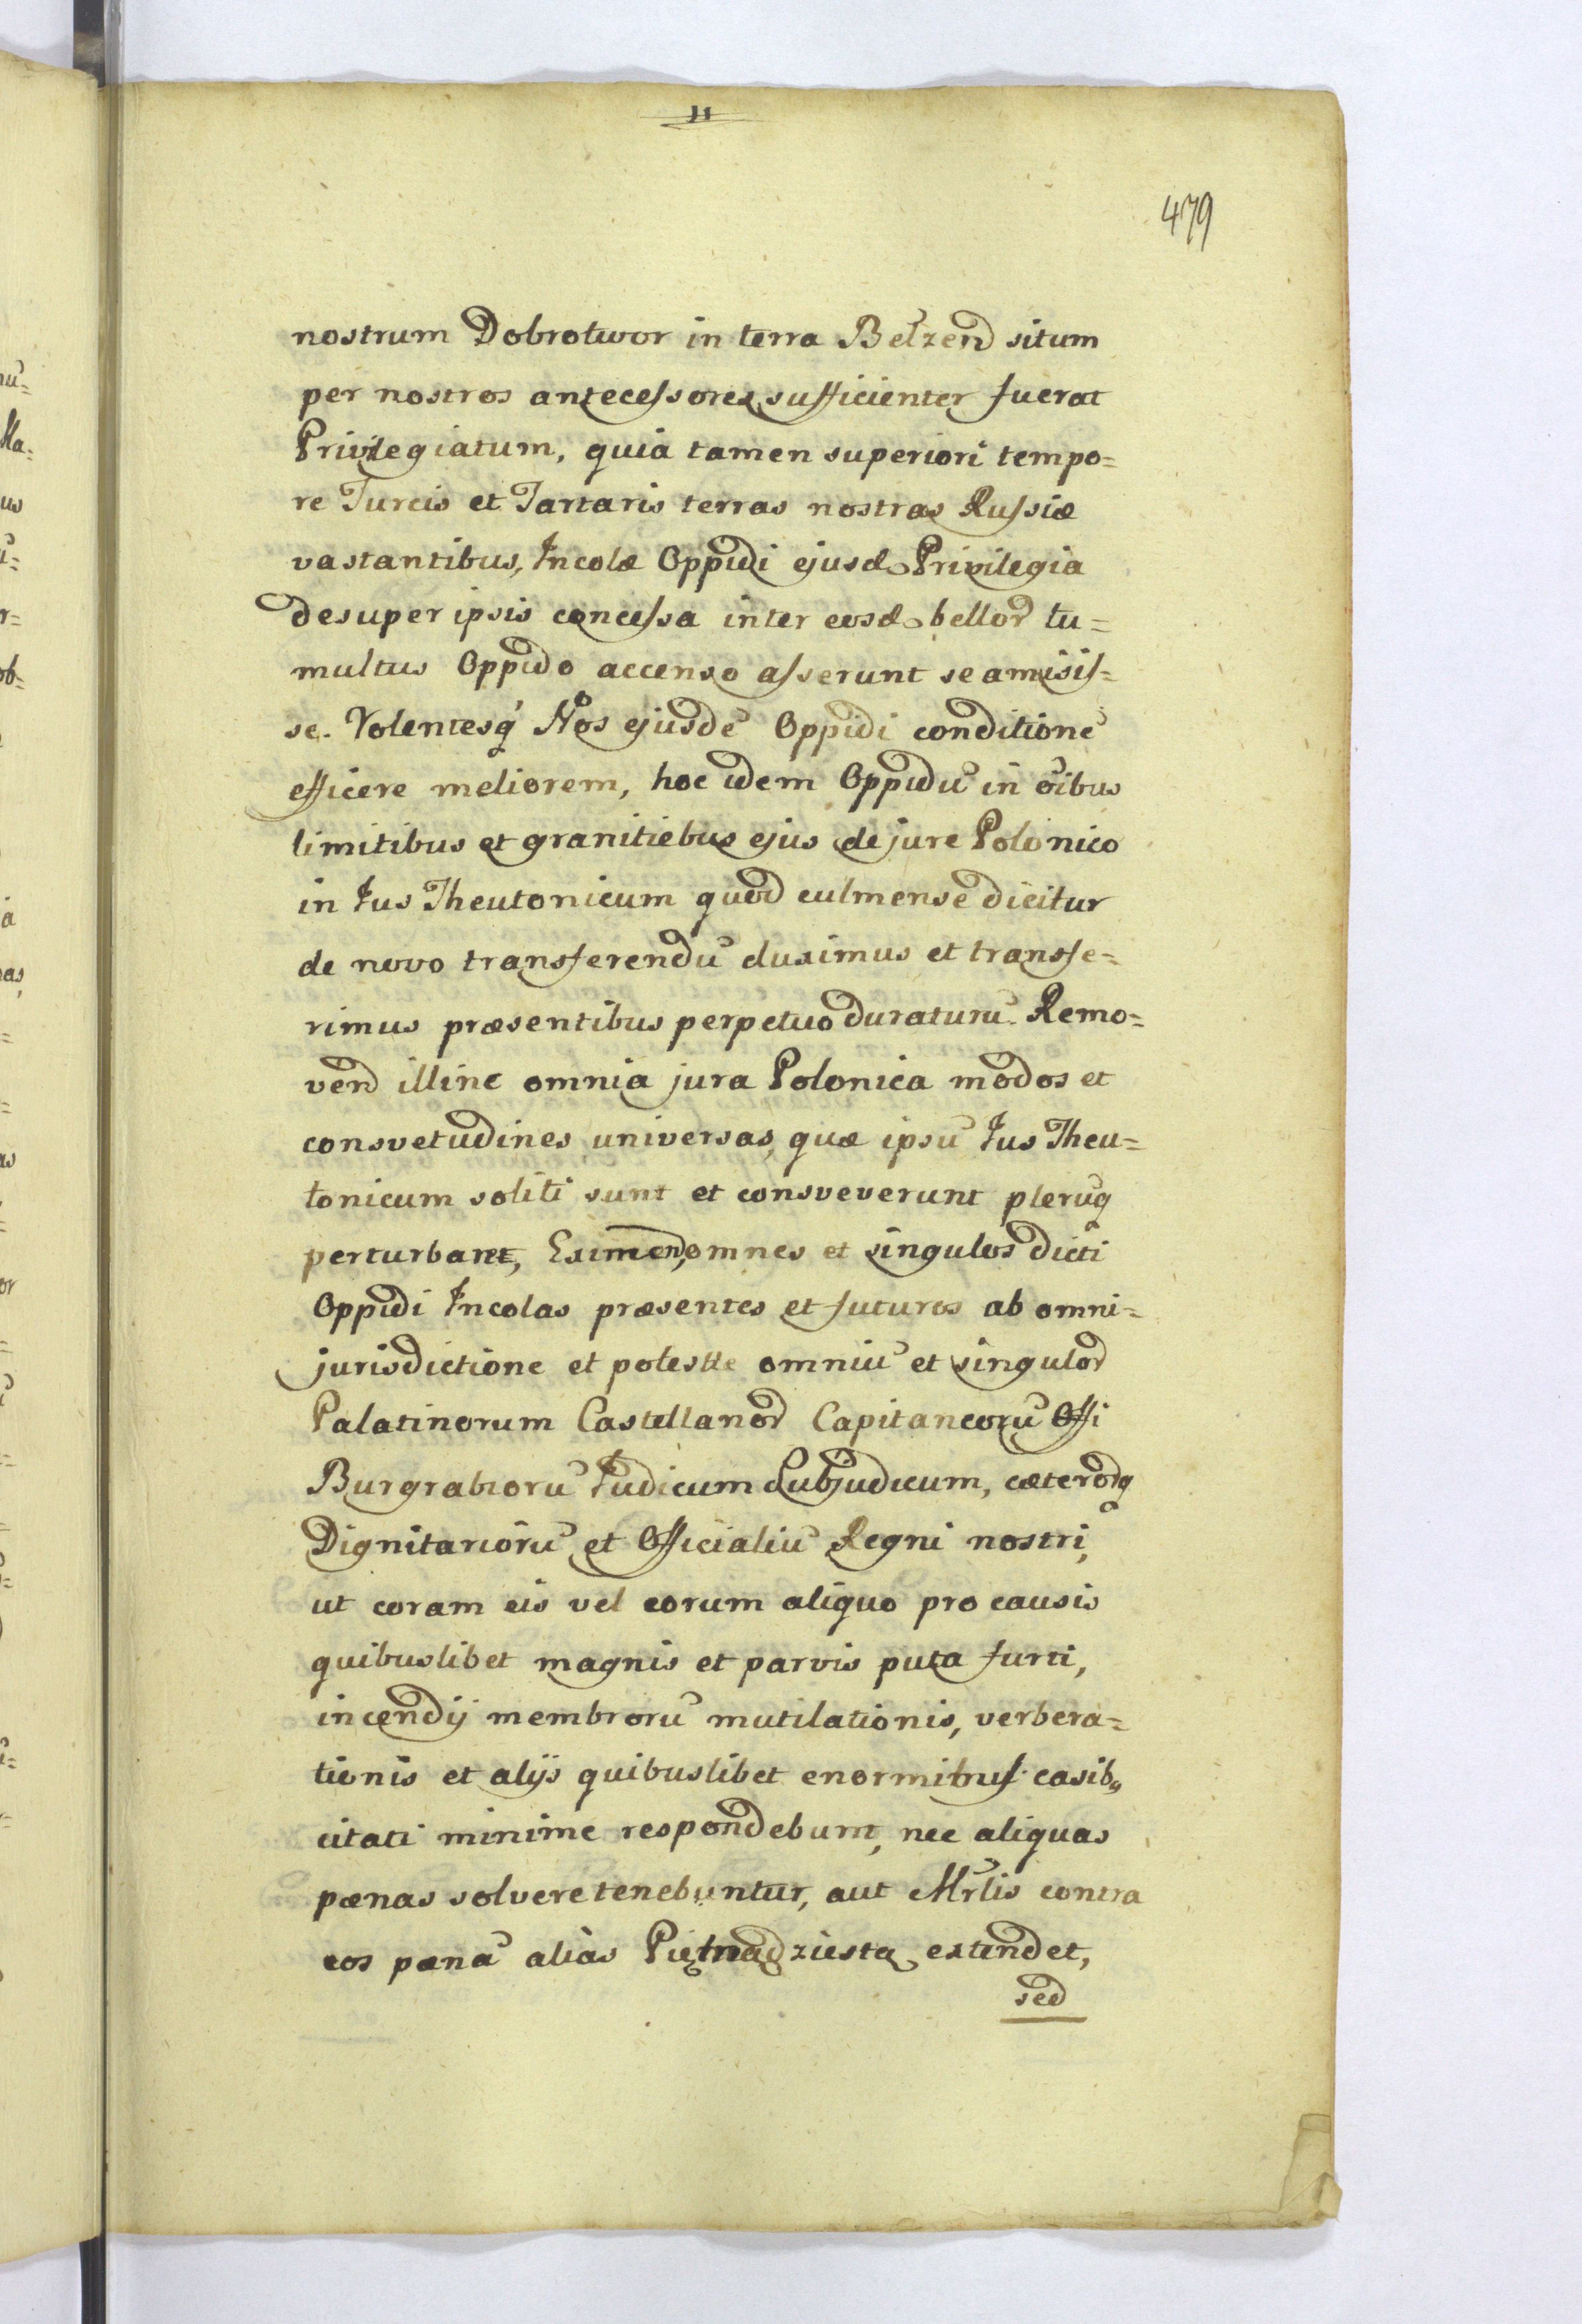 11
479
nostrum Dobrotwor in terra Belzen̄d situm
per nostros antecessores sufficienter fuerat
Privilegiatum, quia tamen superiori tempo=
re Turcis et Tartaris terras nostras Russiæ
vastantibus, Incolæ Oppidi ejusd. Privilegia
desuper ipsis concessa inter eosd. bellor̄ tu=
multus Oppido accenso asserunt se amisis=
se. Volentesq̃ Nos ejusdē Oppidi conditionē
efficere meliorem, hoc idem Oppidū in oibus
limitibus et granitiebus ejus de jure Polonico
in Jus Theutonicum quod culmense dicitur
de novo transferendū duximus et transfe=
rimus præsentibus perpetuo duraturū. Remo=
vend illinc omnia jura Polonica modos et
consvetudines universas, quæ ipsū Jus Theu=
tonicum soliti sunt et consveverunt plerūq
perturbare, Eximend, omnes et singulos dicti
Oppidi Incolas præsentes et futuros ab omni=
jurisdictione et potestte omniū et singulor̄
Palatinorum Castellanor̄ Capitaneorū Offi
Burgrabiorū Judicum Subjudicum, cæteror̄q
Dignitariorū et Officialiū Regni nostri,
ut coram eis vel eorum aliquo pro causis
quibuslibet magnis et parvis puta furti,
incendij membrorū mutilationis, verbera=
tionis et alijs quibuslibet enormibus casib9
citati minime respondebunt, nec aliquas
pœnas solvere tenebuntur, aut Mrlis contra
eos pœnā aliàs Piętnadziesta extendet,
sed